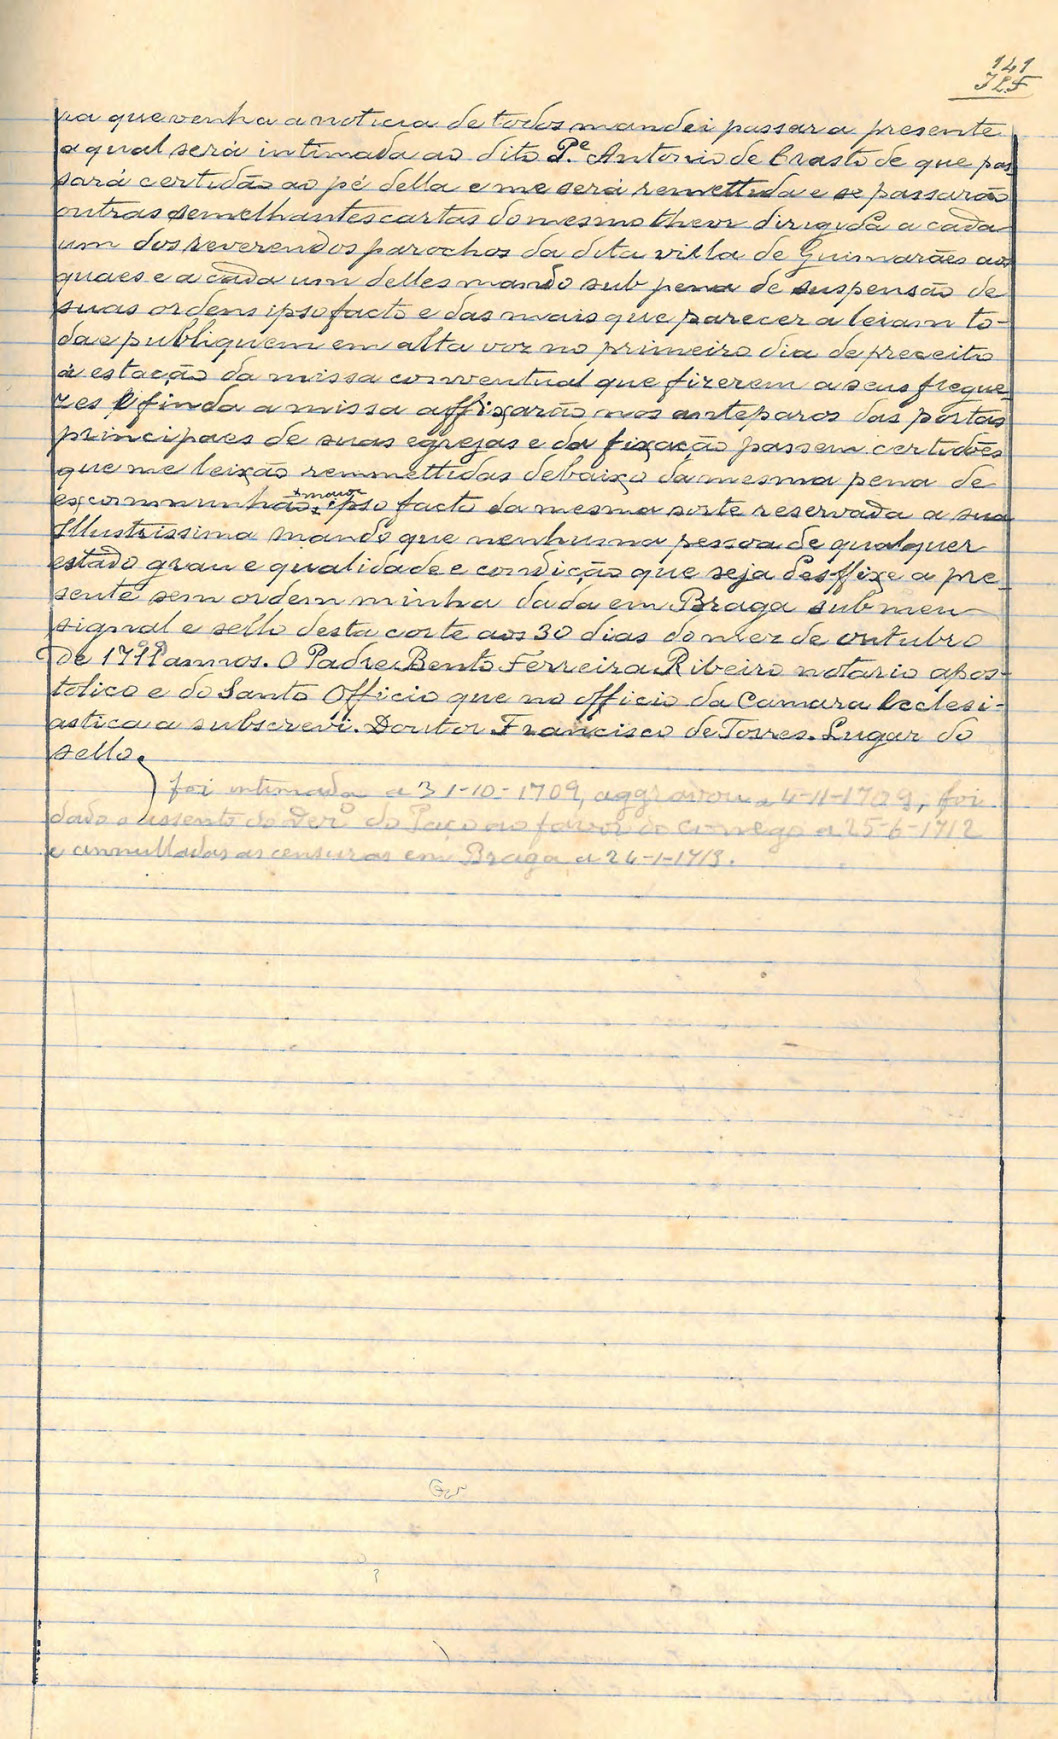 141
JLF
ra que venha a noticia de todos mandei passar a presente
a qual será intimada ao dito P.e Antonio de Crasto de que pas-
sará certidão ao pé della e me será remettida e se passarão
outras semelhantes cartas do mesmo theor dirigida a cada
um dos reverendos parochos da dita villa de Guimarães aos
quaes e a cada um delles mando sub pena de suspensão de
suas ordens ipso facto e das mais que parecer a leiam to-
da e publiquem em alta voz no primeiro dia de preceito
á estação da missa conventual que fizerem a seus fregue-
zes e finda a missa affixarão nos anteparos das portas
principaes de suas egrejas e da fixação passem certidões
que me leixão remmettidas debaixo da mesma pena de
excommunhão + maior ipso facto da mesma sorte reservada a sua
Illustrissima mando que nenhuma pessoa de qualquer
estado grau e qualidade e condição que seja desffixe a pre-
sente sem ordem minha dada em Braga sub meu
signal e sello desta corte aos 30 dias do mez de outubro
de 1709 annos. O Padre Bento Ferreira Ribeiro notario apos-
tolico e do Santo Officio que no officio da Camara Eclesi-
astica a subscrevi. Doutor Francisco de Torres. Lugar do
sello.
foi intimada a 31-10-1709, aggravou a 4-11-1709, foi
dado o assento do Dez.o do Paço ao favor do conego a 25-6-1712
e annulladas as censuras em Braga a 24-1-1713.